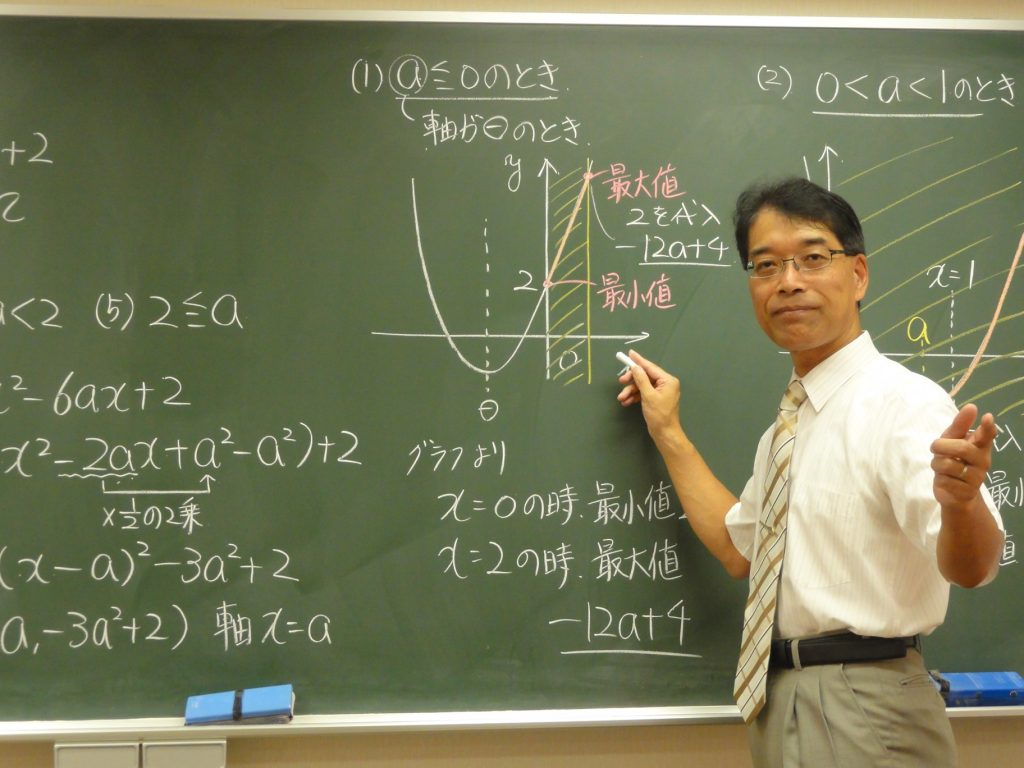 +2
2
a<2 (5) 2≦a
x²-6ax+2
x²-2ax+a²-a²)+2
×1/2の2乗
(x-a)²-3a²+2
a,-3a²+2) 軸x=a
(1) a≦0のとき.
軸が⊖のとき.
y
最大値
2を代入
-12a+4
2
最小値
0
⊖
グラフより
x=0の時.最小値2
x=2の時.最大値
-12a+4
(2) 0<a<1のとき
x=1
a
入
最小
値